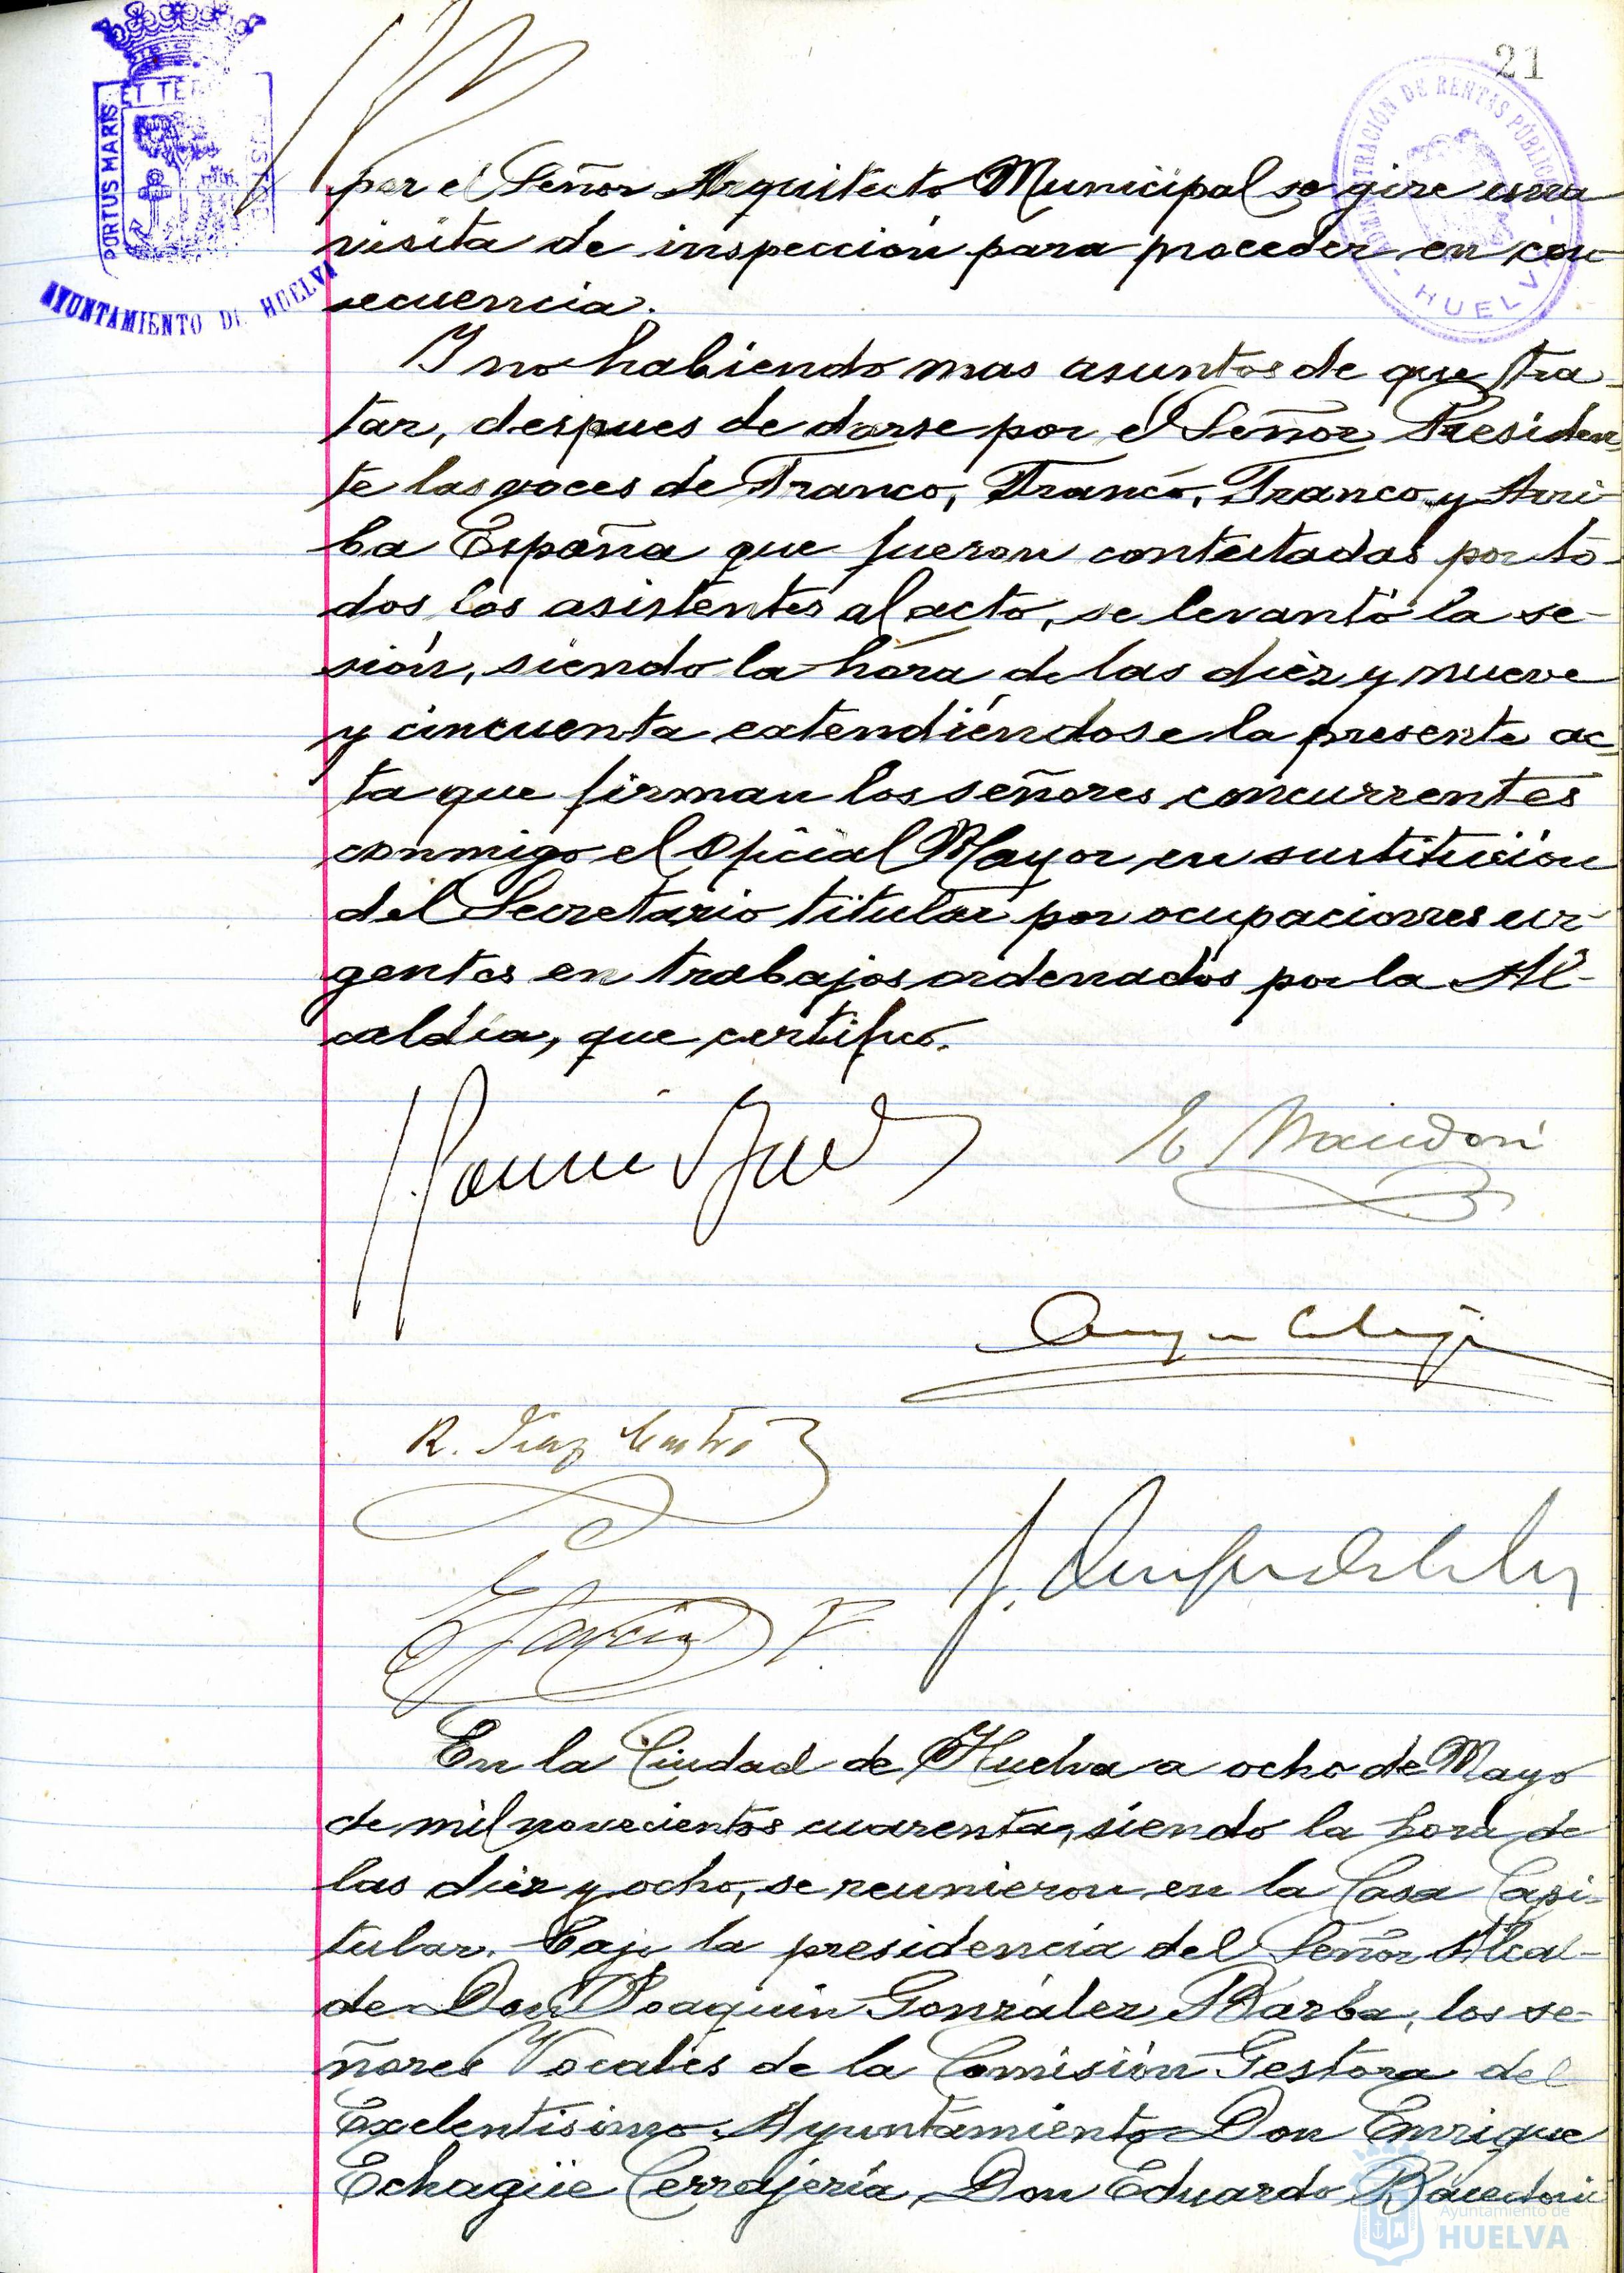 21
PORTUS MARIS
ET TER
AYUNTAMIENTO DE HUELVA
ADMINISTRACIÓN DE RENTAS PÚBLICAS
- HUELVA -
por el Señor Arquitecto Municipal se gire una
visita de inspección para proceder en con-
secuencia.
Y no habiendo mas asuntos de que tra-
tar, despues de darse por el Señor Presiden
te las voces de Franco, Franco, Franco y Arri-
ba España que fueron contestadas por to-
dos los asistentes al acto, se levantó la se-
sión, siendo la hora de las diez y nueve
y cincuenta extendiéndose la presente ac-
ta que firman los señores concurrentes
conmigo el Oficial Mayor en sustitución
del Secretario titular por ocupaciones ur-
gentes en trabajos ordenados por la Al-
caldía, que certifico.
R. Diaz
E Garcia
En la Ciudad de Huelva a ocho de Mayo
de mil novecientos cuarenta, siendo la hora de
las diez y ocho, se reunieron en la Casa Capi-
tular. Bajo la presidencia del Señor Alcal-
de Don Joaquin González Barba, los se-
ñores Vocales de la Comisión Gestora del
Exelentisimo Ayuntamiento Don Enrique
Echagüe Cerrajería, Don Eduardo
Ayuntamiento de
HUELVA